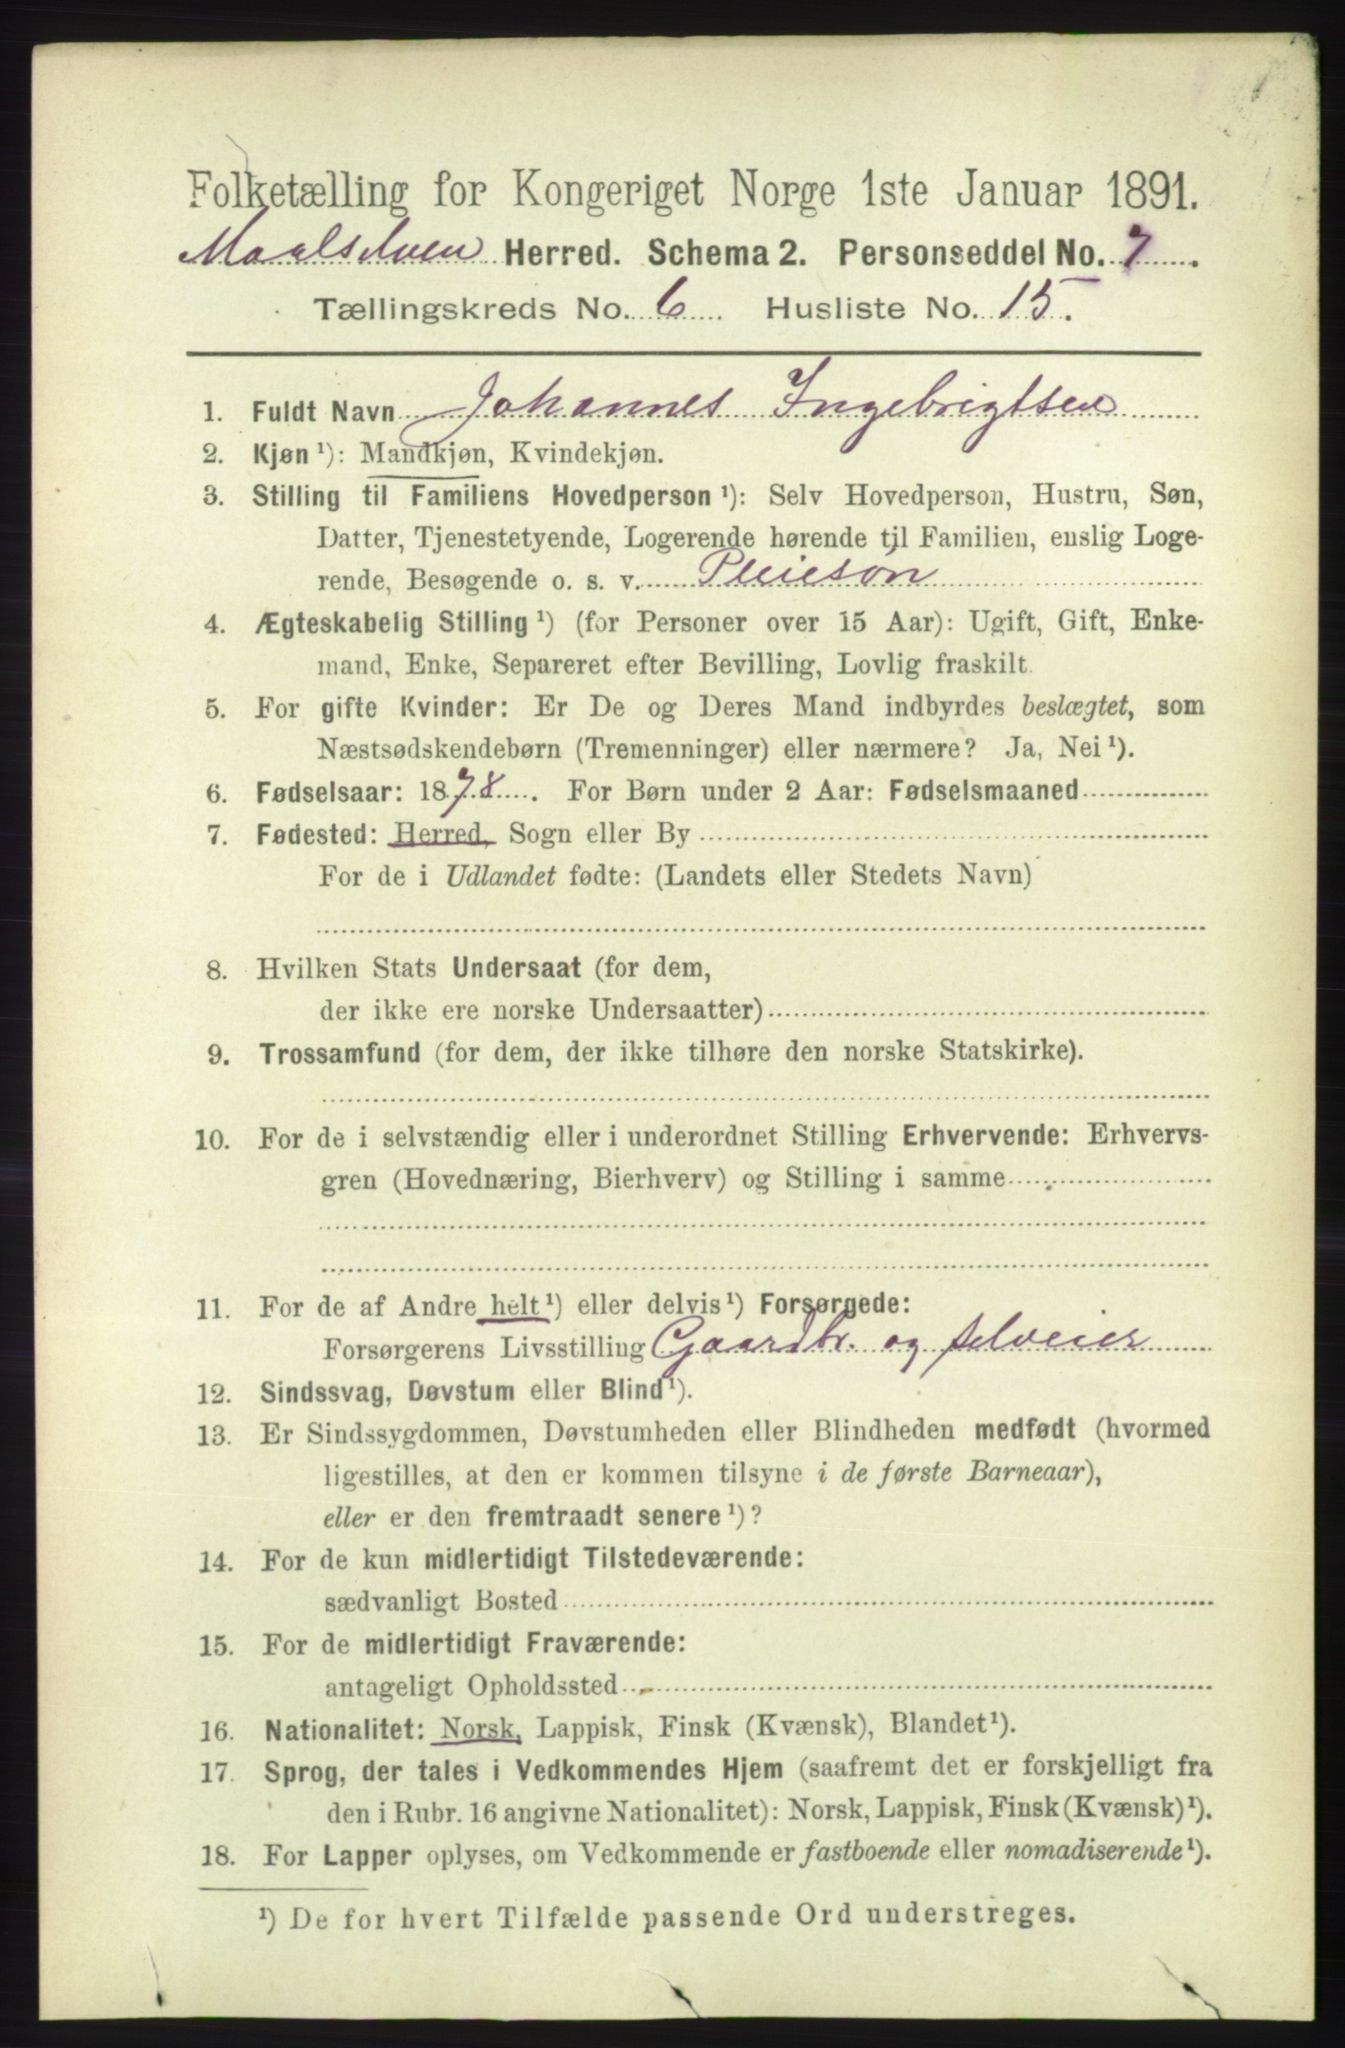 Folketælling for Kongeriget Norge 1ste Januar 1891.
Maalselven Herred. Schema 2. Personseddel No. 7.
Tællingskreds No. 6. Husliste No. 15.
1. Fuldt Navn Johannes Ingebrigtsen
2. Kjøn ¹): Mandkjøn, Kvindekjøn.
3. Stilling til Familiens Hovedperson ¹): Selv Hovedperson, Hustru, Søn,
Datter, Tjenestetyende, Logerende hørende til Familien, enslig Loge-
rende, Besøgende o. s. v. Pleiesøn
4. Ægteskabelig Stilling ¹) (for Personer over 15 Aar): Ugift, Gift, Enke-
mand, Enke, Separeret efter Bevilling, Lovlig fraskilt.
5. For gifte Kvinder: Er De og Deres Mand indbyrdes beslægtet, som
Næstsødskendebørn (Tremenninger) eller nærmere? Ja, Nei ¹).
6. Fødselsaar: 1878. For Børn under 2 Aar: Fødselsmaaned
7. Fødested: Herred, Sogn eller By
For de i Udlandet fødte: (Landets eller Stedets Navn)
8. Hvilken Stats Undersaat (for dem,
der ikke ere norske Undersaatter)
9. Trossamfund (for dem, der ikke tilhøre den norske Statskirke).
10. For de i selvstændig eller i underordnet Stilling Erhvervende: Erhvervs-
gren (Hovednæring, Bierhverv) og Stilling i samme
11. For de af Andre helt ¹) eller delvis ¹) Forsørgede:
Forsørgerens Livsstilling Gaardbr. og selveier
12. Sindssvag, Døvstum eller Blind ¹).
13. Er Sindssygdommen, Døvstumheden eller Blindheden medfødt (hvormed
ligestilles, at den er kommen tilsyne i de første Barneaar),
eller er den fremtraadt senere ¹)?
14. For de kun midlertidigt Tilstedeværende:
sædvanligt Bosted
15. For de midlertidigt Fraværende:
antageligt Opholdssted
16. Nationalitet: Norsk, Lappisk, Finsk (Kvænsk), Blandet ¹).
17. Sprog, der tales i Vedkommendes Hjem (saafremt det er forskjelligt fra
den i Rubr. 16 angivne Nationalitet): Norsk, Lappisk, Finsk (Kvænsk) ¹).
18. For Lapper oplyses, om Vedkommende er fastboende eller nomadiserende ¹).
¹) De for hvert Tilfælde passende Ord understreges.